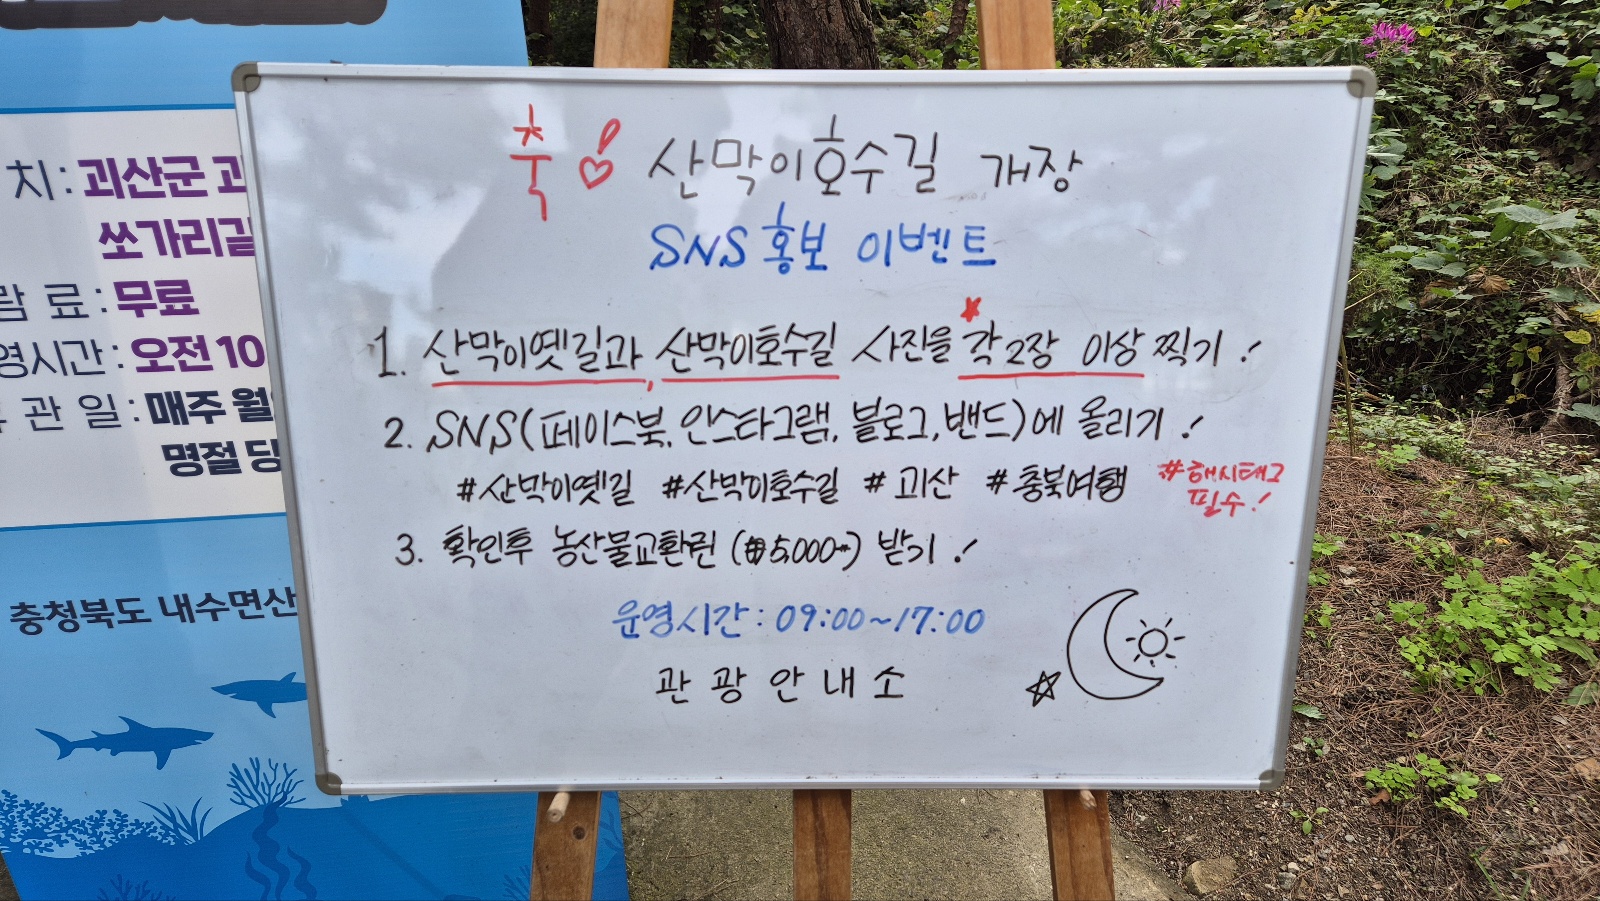 치: 괴산군
쏘가리길
람 료: 무료
영시간: 오전 10
관 일: 매주 월
명절 당
충청북도 내수면산
축! 산막이호수길 개장
SNS 홍보 이벤트
1. 산막이옛길과, 산막이호수길 사진을 각 2장 이상 찍기!
2. SNS(페이스북, 인스타그램, 블로그, 밴드)에 올리기!
#산막이옛길 #산막이호수길 #괴산 #충북여행
#해시태그
필수!
3. 확인후 농산물교환권 (₩5,000-) 받기!
운영시간: 09:00~17:00
관광안내소